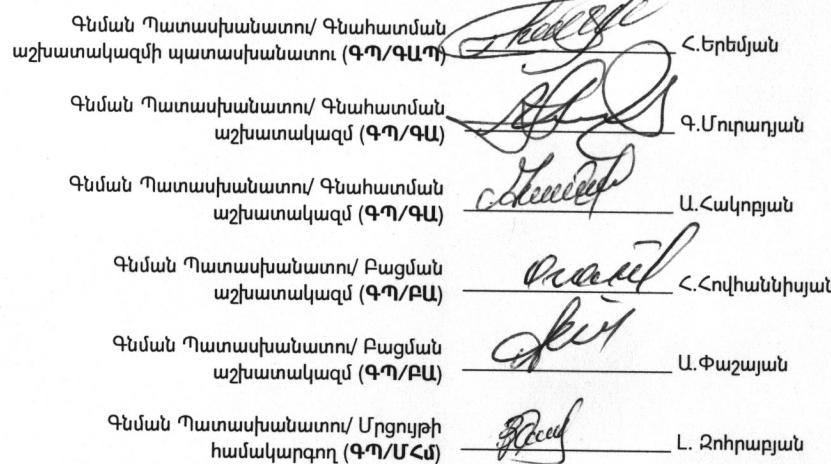 Գնման Պատասխանատու/ Գնահատման
աշխատակազմի պատասխանատու (ԳՊ/ԳԱՊ) Հ.Երեմյան
Գնման Պատասխանատու/ Գնահատման
աշխատակազմ (ԳՊ/ԳԱ) Գ.Մուրադյան
Գնման Պատասխանատու/ Գնահատման
աշխատակազմ (ԳՊ/ԳԱ) Ա.Հակոբյան
Գնման Պատասխանատու/ Բացման
աշխատակազմ (ԳՊ/ԲԱ) Հ.Հովհաննիսյան
Գնման Պատասխանատու/ Բացման
աշխատակազմ (ԳՊ/ԲԱ) Ա.Փաշայան
Գնման Պատասխանատու/ Մրցույթի
համակարգող (ԳՊ/ՄՀմ) Լ. Զոհրաբյան